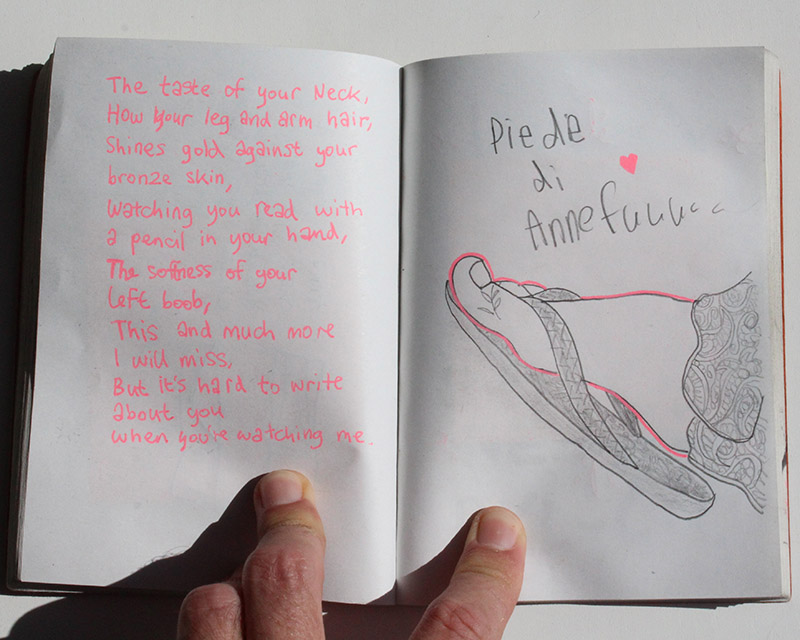 The taste of your Neck,
How your leg and arm hair,
Shines gold against your
bronze skin,
Watching you read with
a pencil in your hand,
The softness of your
left boob,
This and much more
I will miss,
But it's hard to write
about you
when you're watching me.
Piede
di
Annefuuu...